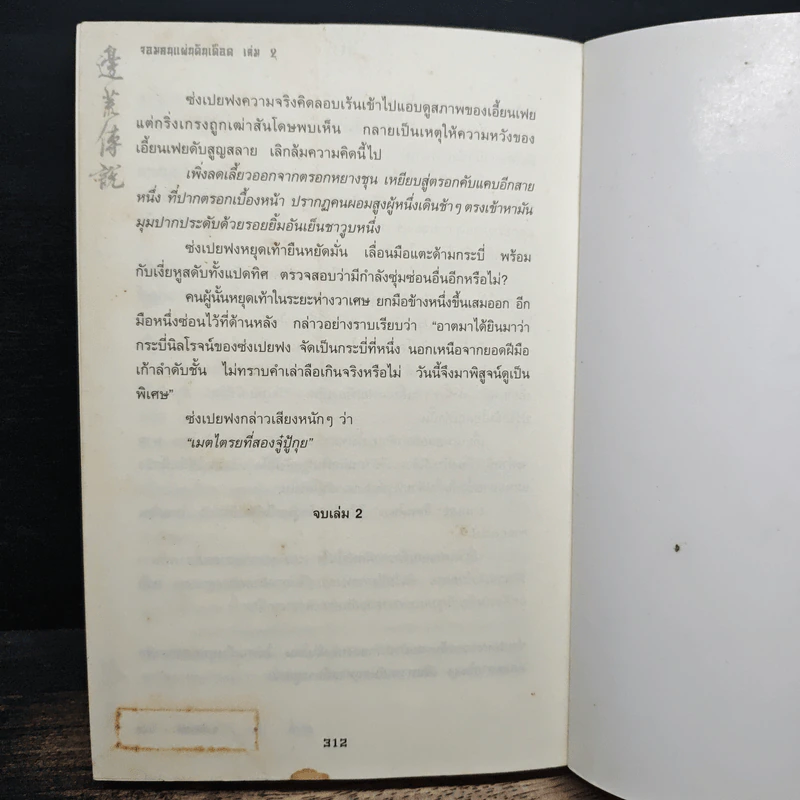 จอมคนแผ่นดินเดือด เล่ม 2
邊荒傳說
ซ่งเปยฟงความจริงคิดลอบเร้นเข้าไปแอบดูสภาพของเอี้ยนเฟย
แต่กริ่งเกรงถูกเฒ่าสันโดษพบเห็น กลายเป็นเหตุให้ความหวังของ
เอี้ยนเฟยดับสูญสลาย เลิกล้มความคิดนี้ไป
เพิ่งลดเลี้ยวออกจากตรอกหยางชุน เหยียบสู่ตรอกคับแคบอีกสาย
หนึ่ง ที่ปากตรอกเบื้องหน้า ปรากฏคนผอมสูงผู้หนึ่งเดินช้าๆ ตรงเข้าหามัน
มุมปากประดับด้วยรอยยิ้มอันเย็นชาวูบหนึ่ง
ซ่งเปยฟงหยุดเท้ายืนหยัดมั่น เลื่อนมือแตะด้ามกระบี่ พร้อม
กับเงี่ยหูสดับทั้งแปดทิศ ตรวจสอบว่ามีกำลังซุ่มซ่อนอื่นอีกหรือไม่?
คนผู้นั้นหยุดเท้าในระยะห่างวาเศษ ยกมือข้างหนึ่งขึ้นเสมออก อีก
มือหนึ่งซ่อนไว้ที่ด้านหลัง กล่าวอย่างราบเรียบว่า “อาตมาได้ยินมาว่า
กระบี่นิลโรจน์ของซ่งเปยฟง จัดเป็นกระบี่ที่หนึ่ง นอกเหนือจากยอดฝีมือ
เก้าลำดับชั้น ไม่ทราบคำเล่าลือเกินจริงหรือไม่ วันนี้จึงมาพิสูจน์ดูเป็น
พิเศษ”
ซ่งเปยฟงกล่าวเสียงหนักๆ ว่า
“เมตไตรยที่สองจู๋ปู้กุย”
จบเล่ม 2
312